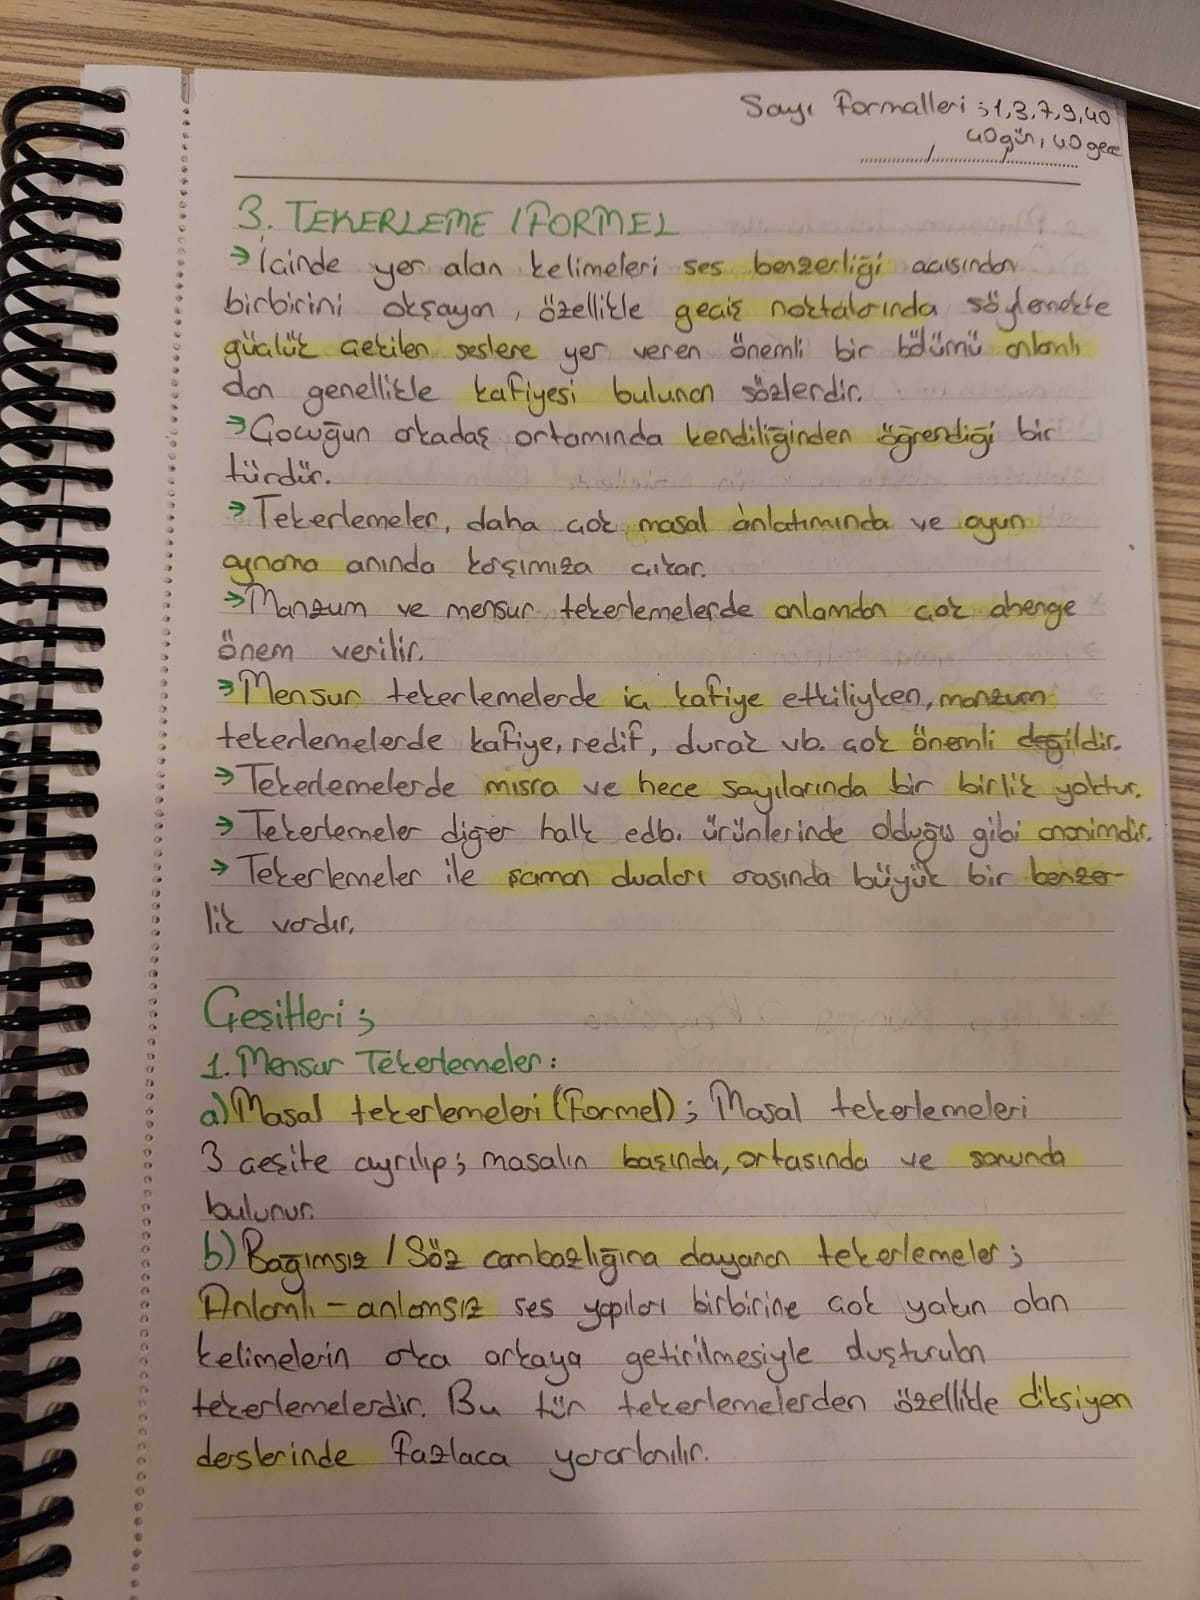 Sayı Formalleri ; 1, 3, 7, 9, 40
40 gün, 40 gece
3. TEKERLEME / FORMEL
→ İçinde yer alan kelimeleri ses benzerliği açısından
birbirini okşayan, özellikle geçiş noktalarında söylemekte
güçlük çekilen seslere yer veren önemli bir bölümü anlamlı
dan genellikle kafiyesi bulunan sözlerdir.
→ Çocuğun arkadaş ortamında kendiliğinden öğrendiği bir
türdür.
→ Tekerlemeler, daha çok masal anlatımında ve oyun
oynama anında karşımıza çıkar.
→ Manzum ve mensur tekerlemelerde anlamdan çok ahenge
önem verilir.
→ Mensur tekerlemelerde iç kafiye etkiliyken, manzum
tekerlemelerde kafiye, redif, durak vb. çok önemli değildir.
→ Tekerlemelerde mısra ve hece sayılarında bir birlik yoktur.
→ Tekerlemeler diğer halk edb. ürünlerinde olduğu gibi anonimdir.
→ Tekerlemeler ile şaman duaları arasında büyük bir benzer-
lik vardır.
Çeşitleri ;
1. Mensur Tekerlemeler :
a) Masal tekerlemeleri (Formel) ; Masal tekerlemeleri
3 çeşite ayrılıp ; masalın başında, ortasında ve sonunda
bulunur.
b) Bağımsız / Söz cambazlığına dayanan tekerlemeler ;
Anlamlı - anlamsız ses yapıları birbirine çok yakın olan
kelimelerin arka arkaya getirilmesiyle duşturulan
tekerlemelerdir. Bu tür tekerlemelerden özellikle diksiyon
derslerinde fazlaca yararlanılır.